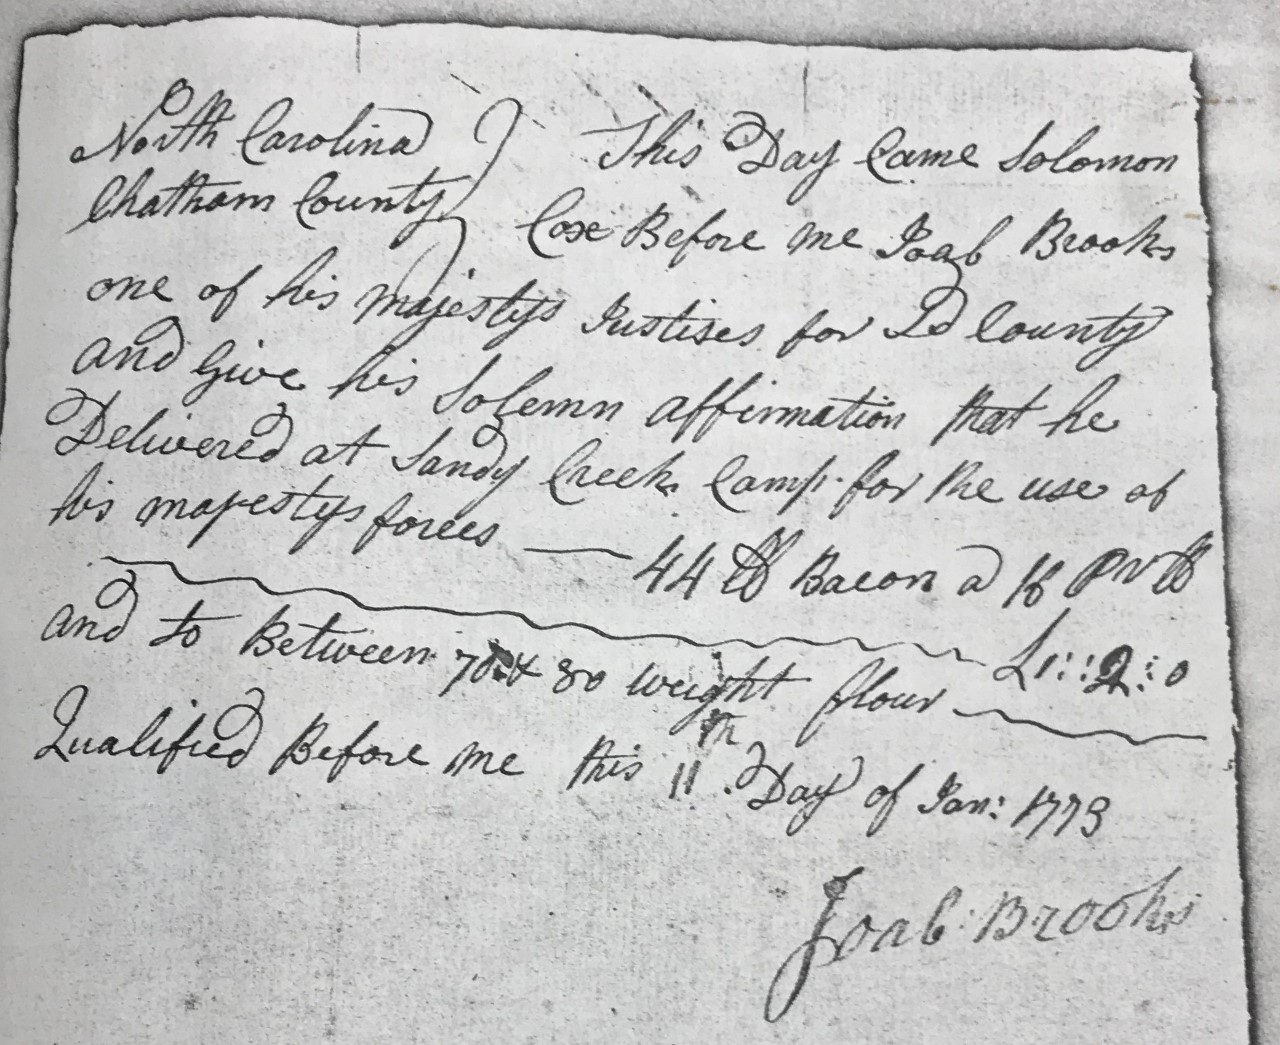 North Carolina } This Day Came Solomon
Chatham County } Cox Before me Joab Brooks
one of his majestys Justises for Sd County
and Give his Solemn affirmation that he
Delivered at Sandy Creek Camp for the use of
his majestys forces — 44 lb Bacon a 16 Pr lb
£1::2:0
and to Between 70 & 80 weight flour
Qualified Before me this 11th Day of Jan: 1773
Joab Brooks